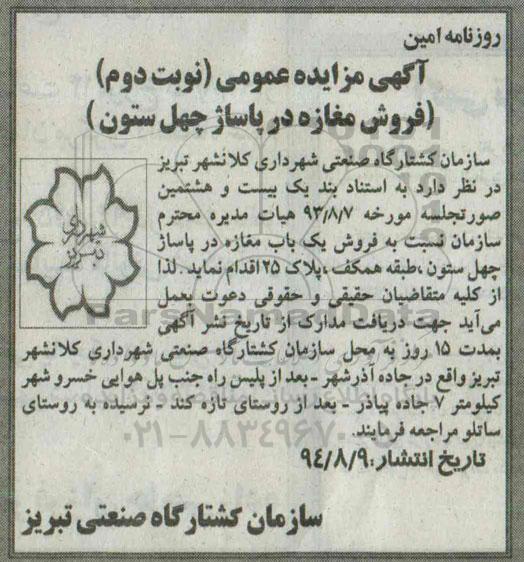 روزنامه امین
آگهی مزایده عمومی (نوبت دوم)
(فروش مغازه در پاساژ چهل ستون)
سازمان کشتارگاه صنعتی شهرداری کلانشهر تبریز
در نظر دارد به استناد بند یک بیست و هشتمین
صورتجلسه مورخه ۹۳/۸/۷ هیات مدیره محترم
سازمان نسبت به فروش یک باب مغازه در پاساژ
چهل ستون ،طبقه همکف ،پلاک ۲۵ اقدام نماید. لذا
از کلیه متقاضیان حقیقی و حقوقی دعوت بعمل
می‌آید جهت دریافت مدارک از تاریخ نشر آگهی
بمدت ۱۵ روز به محل سازمان کشتارگاه صنعتی شهرداری کلانشهر
تبریز واقع در جاده آذرشهر ـ بعد از پلیس راه جنب پل هوایی خسرو شهر
کیلومتر ۷ جاده پیاذر ـ بعد از روستای تازه کند ـ نرسیده به روستای
ساتلو مراجعه فرمایند.
تاریخ انتشار: ۹۴/۸/۹
سازمان کشتارگاه صنعتی تبریز
شهرداری
تبریز
ParsNamadData
۰۲۱-۸۸۳۴۹۶۷۰